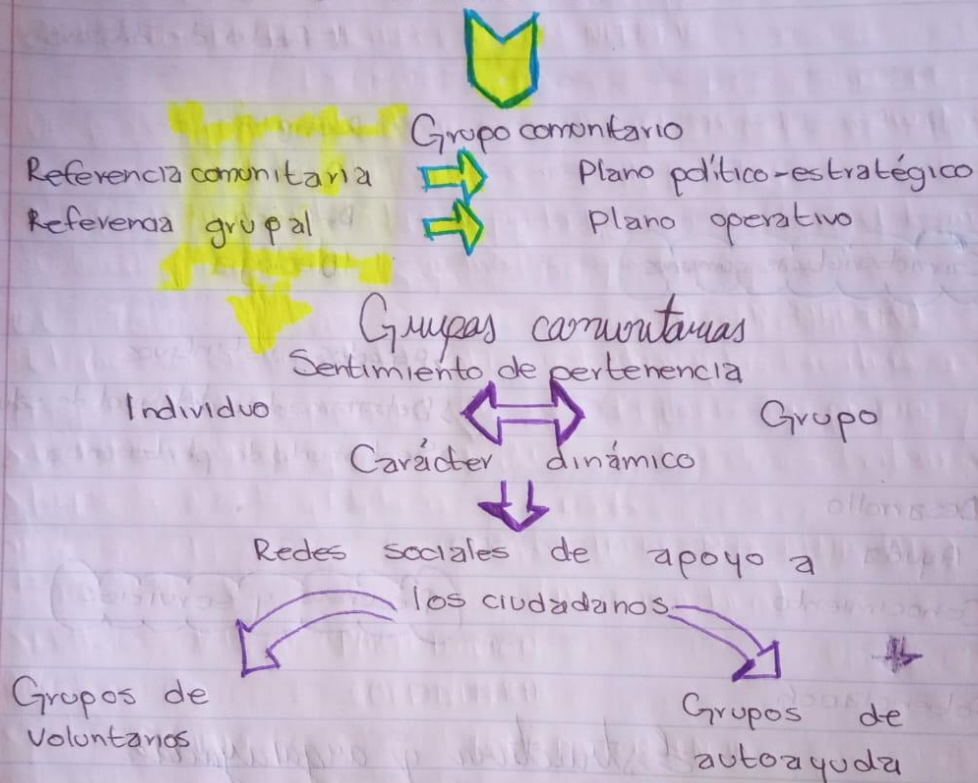 Grupo comunitario
Referencia comunitaria Plano político-estratégico
Referencia grupal Plano operativo
Grupos comunitarios
Sentimiento de pertenencia
Individuo Grupo
Carácter dinámico
Redes sociales de apoyo a
los ciudadanos
Grupos de
voluntarios
Grupos de
autoayuda